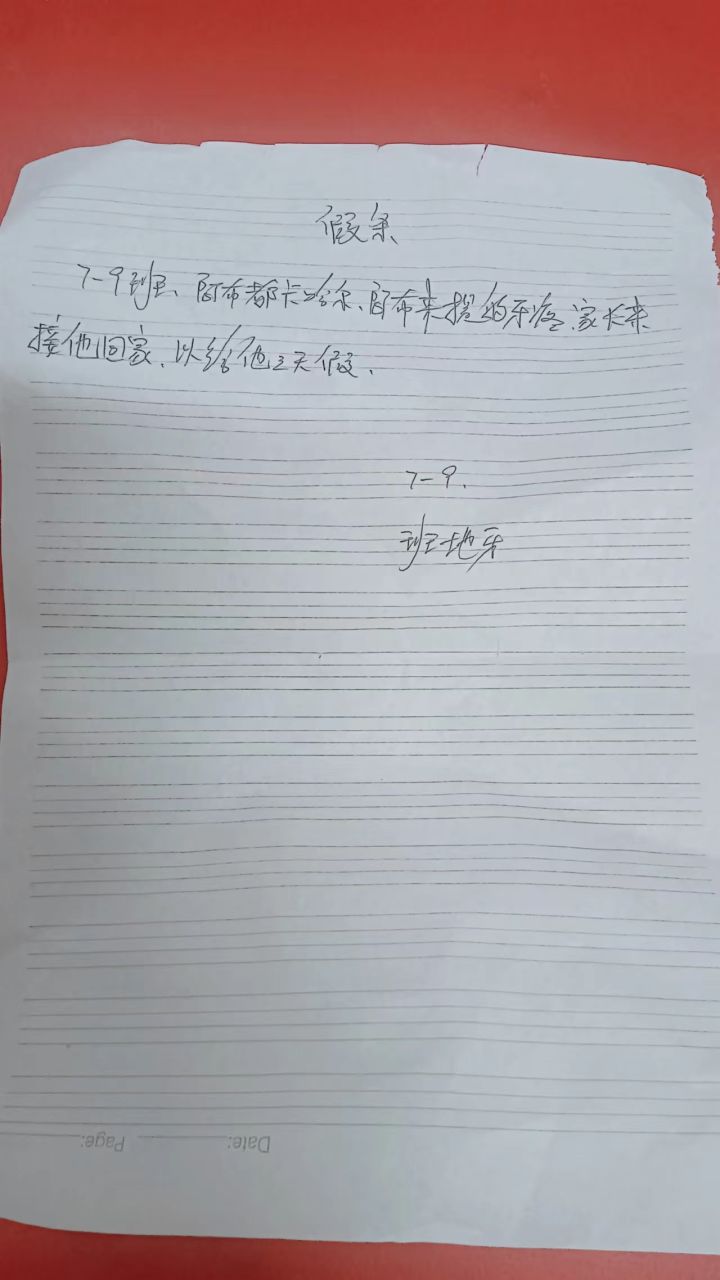 假条
7-9班、阿布都卡哈尔、阿布来提的牙疼、家长来
接他回家、以给他三天假、
7-9、
班地牙
Date: Page: